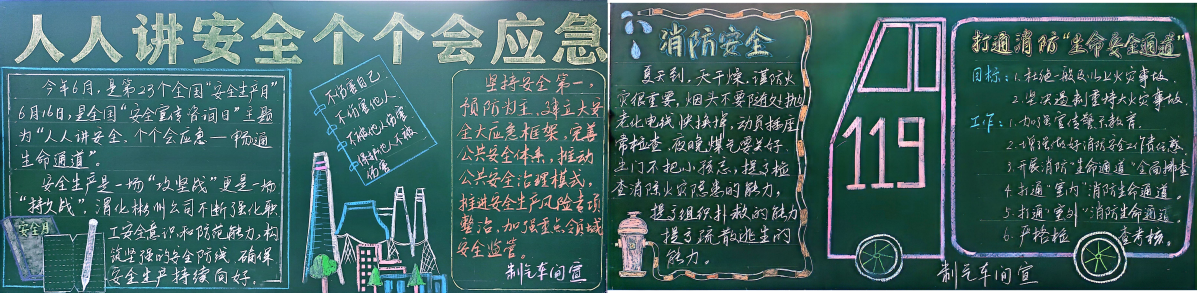 人人讲安全个个会应急
今年6月，是第23个全国“安全生产月”
6月16是全国“安全宣传咨询日”主题
为“人人讲安全、个个会应急—畅通
生命通道”。
安全生产是一场“攻坚战”更是一场
“持久战”，渭化彬州公司不断强化职
工安全意识和防范能力，构
筑坚强的安全防线，确保
安全生产持续向好。
安全月
不伤害自己
不伤害他人
不被他人伤害
保护他人不被
伤害
坚持安全第一，
预防为主，建立大安
全大应急框架，完善
公共安全体系，推动
公共安全治理模式，
推进安全生产风险专项
整治，加强重点领域
安全监管。
制气车间宣
消防安全
夏天到，天干燥，谨防火
灾很重要，烟头不要随处抛
老化电线快换掉，动员插座
常检查，夜晚煤气要关好，
出门不把小孩忘，提高检
查消除火灾隐患的能力，
提高组织扑救的能力
提高疏散逃生的
能力。
119
打通消防“生命安全通道”
目标：1.杜绝一般及以上火灾事故。
2.坚决遏制重特大火灾事故。
工作：1.加强宣传警示教育。
2.增强做好消防安全工作责任感
3.开展消防“生命通道”全面排查
4.打通“室内”消防生命通道。
5.打通“室外”消防生命通道
6.严格检 查考核。
制气车间宣